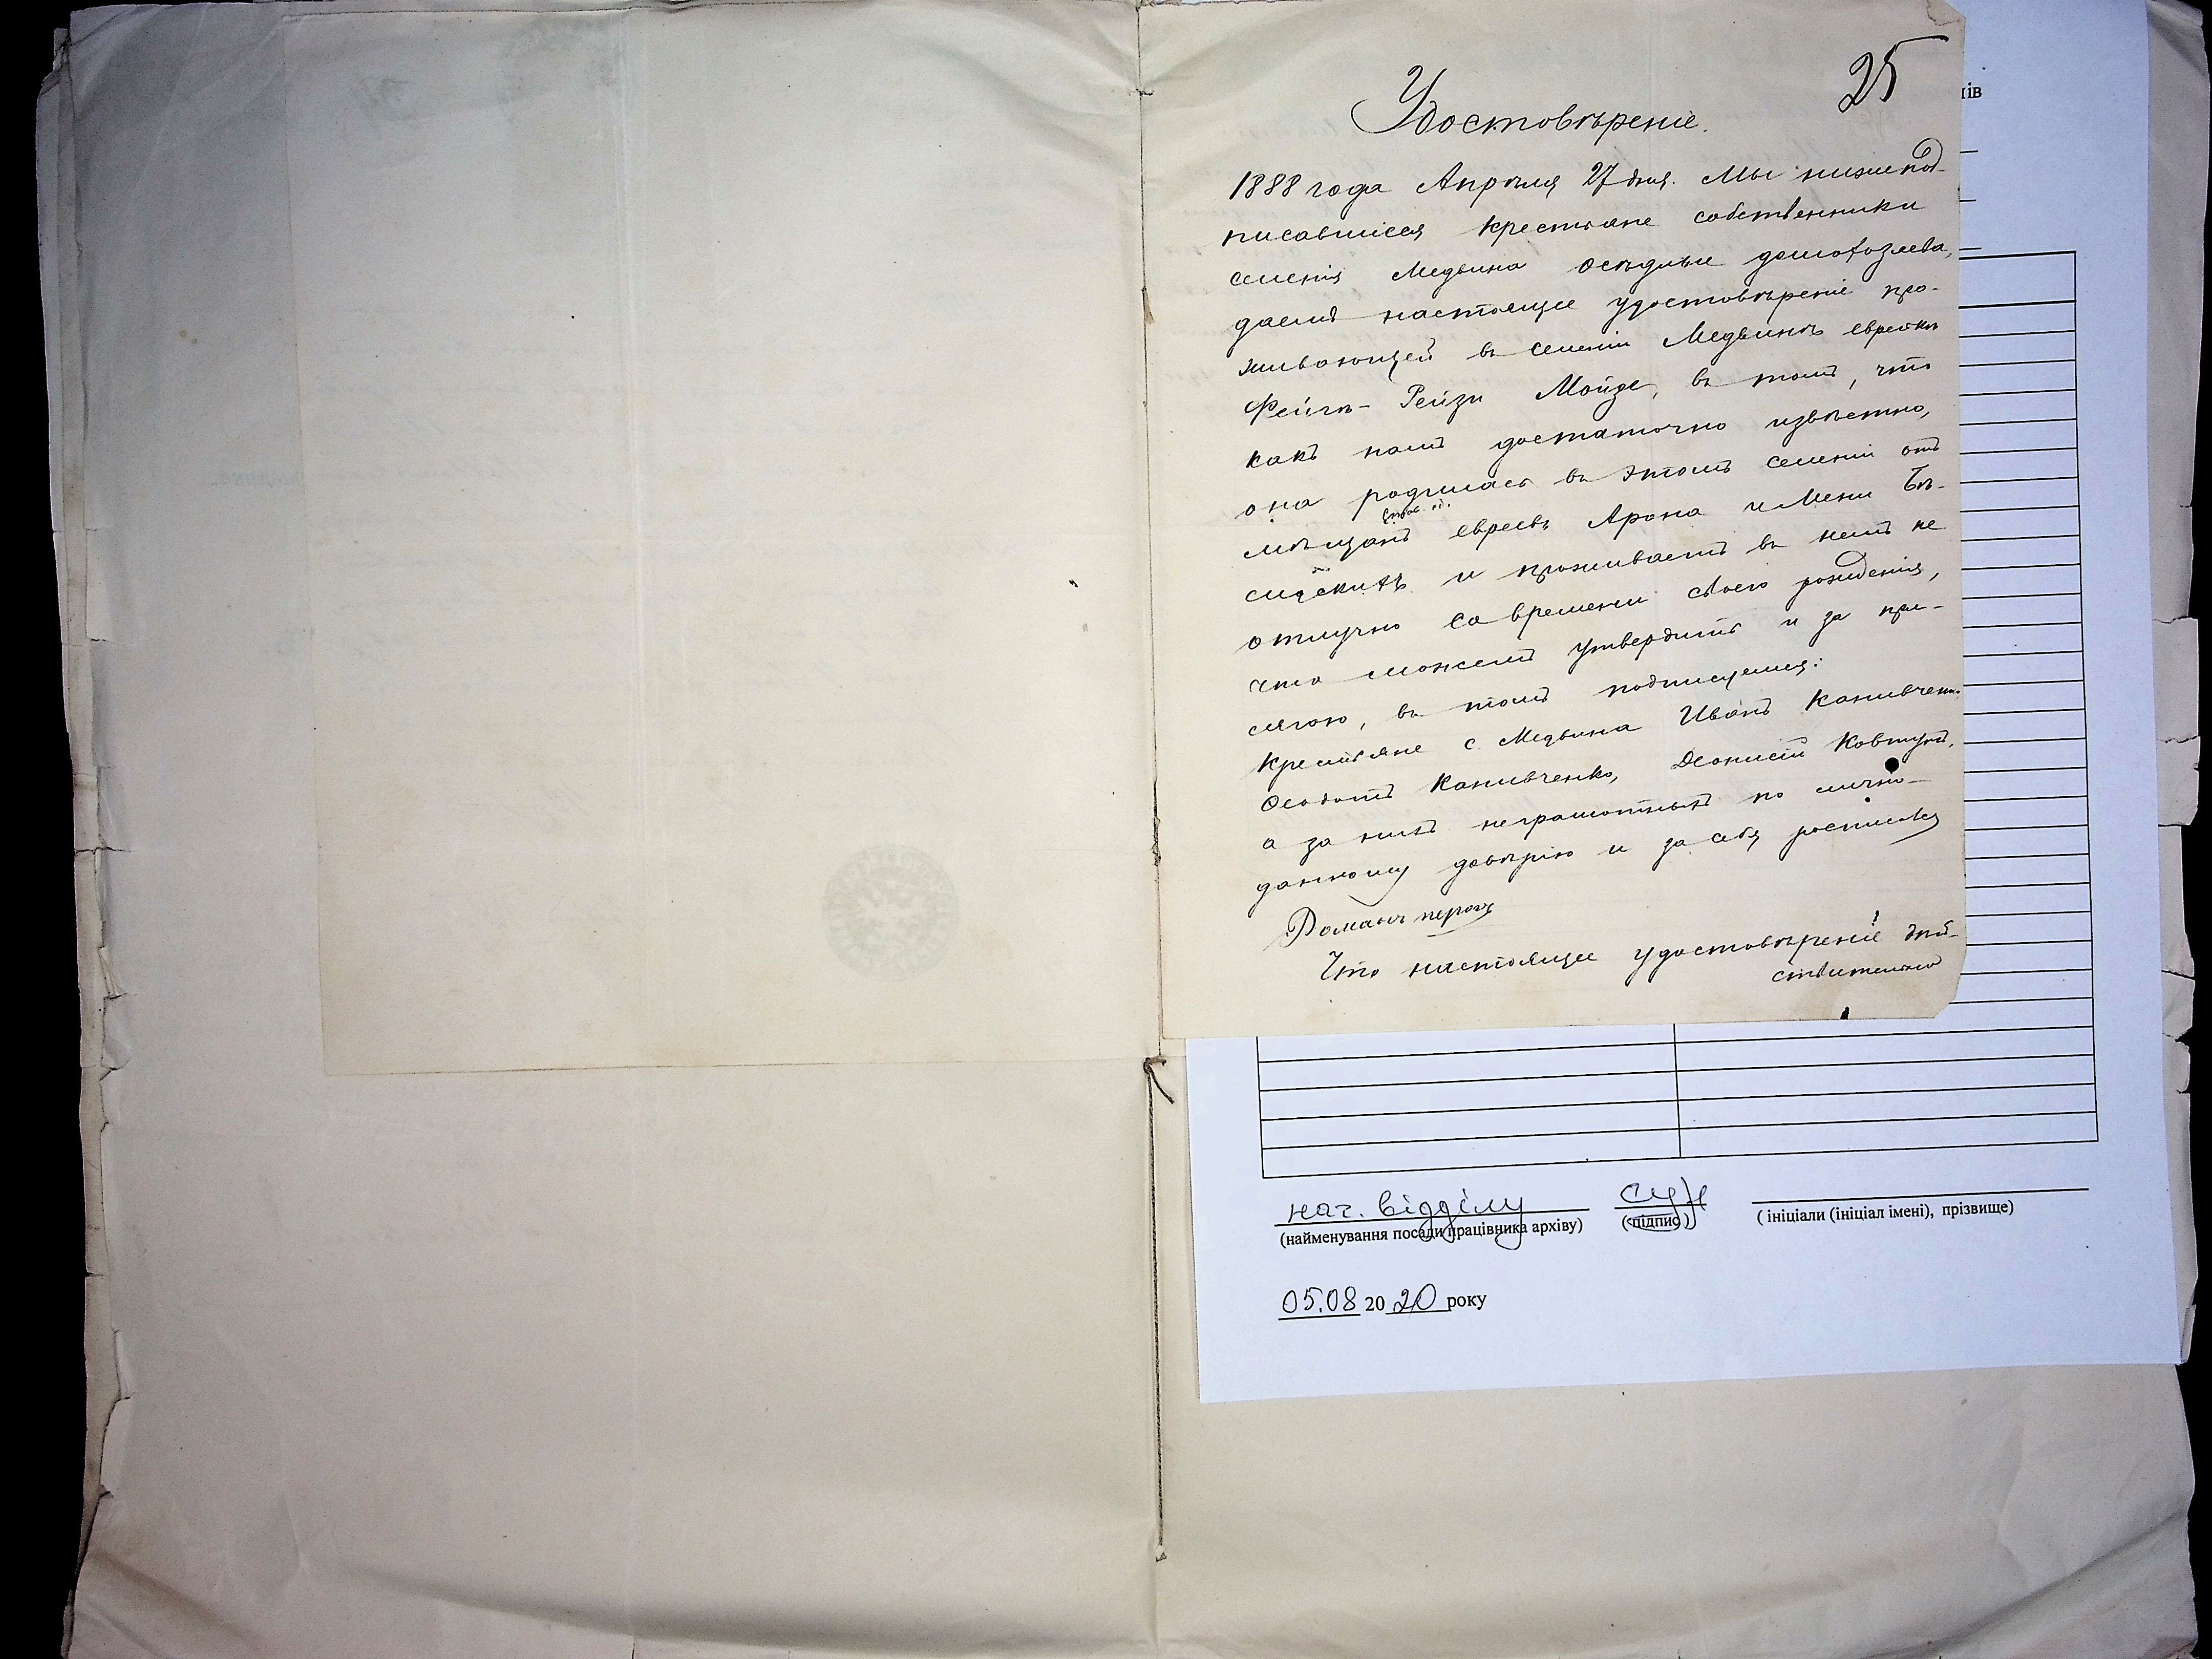 25
Удостовѣреніе.
1888 года Апрѣля 27 дня. Мы нижепод-
писавшіеся крестьяне собственники
селенія Медвина осѣдлые домохозяева,
даемъ настоящее удостовѣреніе про-
живающей въ селеніи Медвинѣ еврейкѣ
Фейгѣ-Рейзи Мойзе, въ томъ, что
какъ намъ достаточно извѣстно,
она родилась въ этомъ селеніи отъ
мѣщанъ евреевъ Арона и Мени Бѣ-
и проживаетъ въ немъ не
отлучно со времени своего рожденія,
что можемъ утвердить и за при-
сягою, въ томъ подписуемся:
Крестьяне с. Медвина Иванъ Канивченко
Феодотъ Канивченко, Деонисій Ковтунъ,
а за нихъ неграмотныхъ по лично-
данному довѣрію и за себя росписался
Романъ
Что настоящее удостовѣреніе дѣй-
ствительно
ів
нач. відділу
(найменування посади працівника архіву) (підпис) ( ініціали (ініціал імені), прізвище)
05.08 2020 року